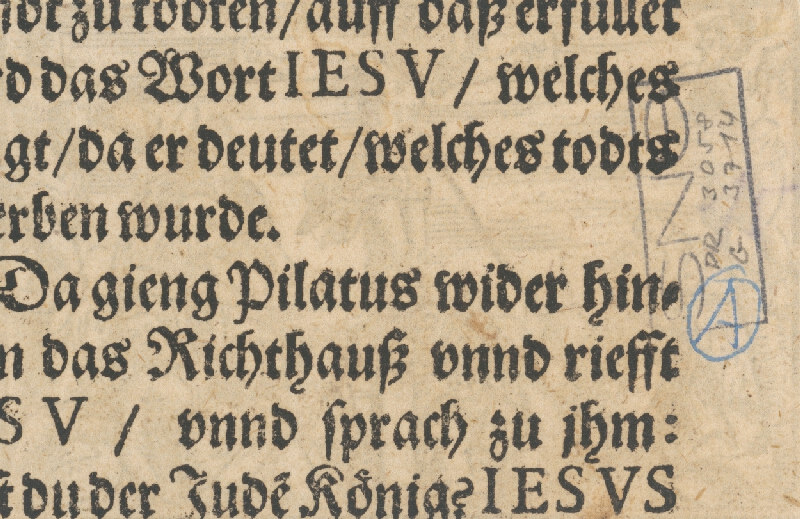 zu tödten/auff daß erfüllet
das Wort IESV / welches
gt/da er deutet/welches todts
erben wurde.
Da gieng Pilatus wider hin⸗
n das Richthauß vnnd riefft
SV / vnnd sprach zu jhm:
t du der Judẽ König? IESVS
DR 3058
G 3714
A